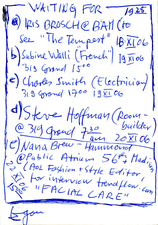 WAITING FOR
1935
a) IRIS BROSCH @ BAM (to
see "The Tempest" 18 XI 06
b) Sabine Walli (French) 19 XI 06
319 Grand 15⁰⁰
c) Charles Smith (Electrician)
319 Grand 17⁰⁰ 19 XI 06
d) Steve Hoffman (Room-
builder)
@ 319 Grand 7³⁰ am 20 XI 06
e) Nana Brew-Hammond
@ Public Atrium 56th Madison
(AOL Fashion + Style Editor
for interview trendflow.com
"FACIAL CARE"
22 XI 06